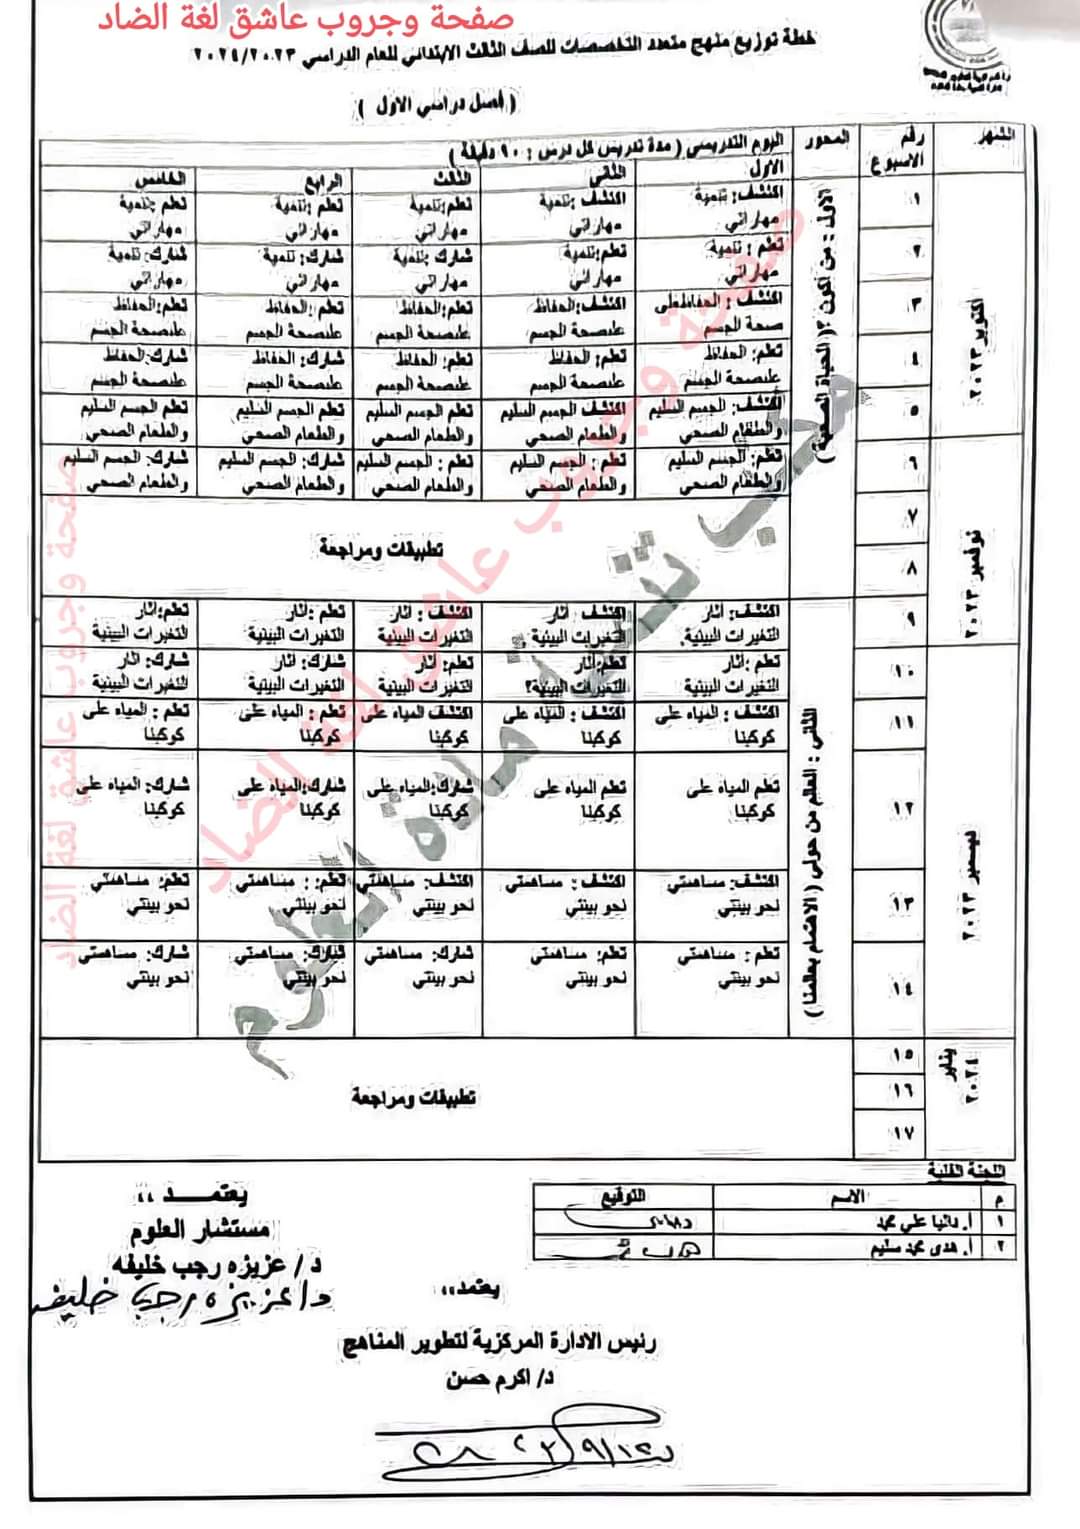 صفحة وجروب عاشق لغة الضاد
خطة توزيع منهج متعدد التخصصات للصف الثالث الابتدائي للعام الدراسي ٢٠٢٣/٢٠٢٤
( فصل دراسي الاول )
الشهر
رقم الاسبوع
المحور
اليوم التدريسي ( مدة تدريس كل درس : ٩٠ دقيقة )
الاول
الثاني
الثالث
الرابع
الخامس
اكتوبر ٢٠٢٣
الاول : من أكون ؟ ( الحياة الصحية )
١
اكتشف: تنمية مهاراتي
اكتشف :تنمية مهاراتي
تعلم :تنمية مهاراتي
تعلم :تنمية مهاراتي
تعلم :تنمية مهاراتي
٢
تعلم : تنمية مهاراتي
تعلم:تنمية مهاراتي
شارك :تنمية مهاراتي
شارك: تنمية مهاراتي
شارك: تنمية مهاراتي
٣
اكتشف : الحفاظ على صحة الجسم
اكتشف:الحفاظ علىصحة الجسم
تعلم :الحفاظ علىصحة الجسم
تعلم :الحفاظ علىصحة الجسم
تعلم:الحفاظ علىصحة الجسم
٤
تعلم: الحفاظ علىصحة الجسم
تعلم: الحفاظ علىصحة الجسم
تعلم: الحفاظ علىصحة الجسم
شارك: الحفاظ علىصحة الجسم
شارك:الحفاظ علىصحة الجسم
٥
اكتشف: الجسم السليم والطعام الصحي
اكتشف الجسم السليم والطعام الصحي
تعلم الجسم السليم والطعام الصحي
تعلم الجسم السليم والطعام الصحي
تعلم الجسم السليم والطعام الصحي
نوفمبر ٢٠٢٣
٦
تعلم: الجسم السليم والطعام الصحي
تعلم : الجسم السليم والطعام الصحي
تعلم : الجسم السليم والطعام الصحي
شارك: الجسم السليم والطعام الصحي
شارك: الجسم السليم والطعام الصحي
٧
٨
تطبيقات ومراجعة
الثاني : العالم من حولي ( الاهتمام بعالمنا )
٩
اكتشف: أثار التغيرات البيئية
اكتشف : أثار التغيرات البيئية
اكتشف : أثار التغيرات البيئية
تعلم :أثار التغيرات البيئية
تعلم:أثار التغيرات البيئية
ديسمبر ٢٠٢٣
١٠
تعلم :أثار التغيرات البيئية
تعلم:أثار التغيرات البيئية؟
تعلم: أثار التغيرات البيئية
شارك: أثار التغيرات البيئية
شارك: أثار التغيرات البيئية
١١
اكتشف : المياه على كوكبنا
اكتشف : المياه على كوكبنا
اكتشف المياه على كوكبنا
تعلم : المياه على كوكبنا
تعلم : المياه على كوكبنا
١٢
تعلم المياه على كوكبنا
تعلم المياه على كوكبنا
شارك:المياه على كوكبنا
شارك:المياه على كوكبنا
شارك: المياه على كوكبنا
١٣
اكتشف: مساهمتي نحو بيئتي
اكتشف : مساهمتي نحو بيئتي
اكتشف: مساهمتي نحو بيئتي
تعلم: : مساهمتي نحو بيئتي
تعلم: مساهمتي نحو بيئتي
١٤
تعلم : مساهمتي نحو بيئتي
تعلم: مساهمتي نحو بيئتي
شارك: مساهمتي نحو بيئتي
شارك: مساهمتي نحو بيئتي
شارك: مساهمتي نحو بيئتي
يناير ٢٠٢٤
١٥
١٦
١٧
تطبيقات ومراجعة
صفحة وجروب عاشق لغة الضاد
صفحة وجروب عاشق لغة الضاد
اللجنة الفنية
م الاسم التوقيع
١ أ. دانيا علي محمد
٢ أ. هدى محمد سليم
يعتمد ،،
مستشار العلوم
د/ عزيزه رجب خليفه
د/ عزيزه رجب خليفه
يعتمد،،
رئيس الادارة المركزية لتطوير المناهج
د/ اكرم حسن